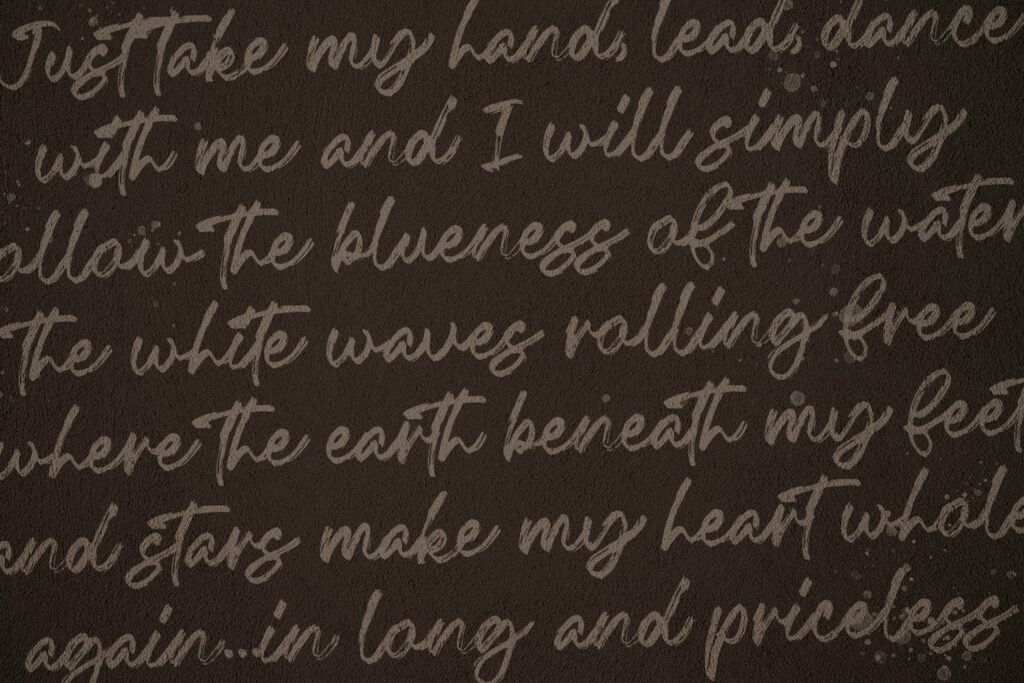 Just take my hand, lead, dance
with me and I will simply
ollow the blueness of the water
the white waves rolling free
where the earth beneath my feet
and stars make my heart whole
again...in long and priceless